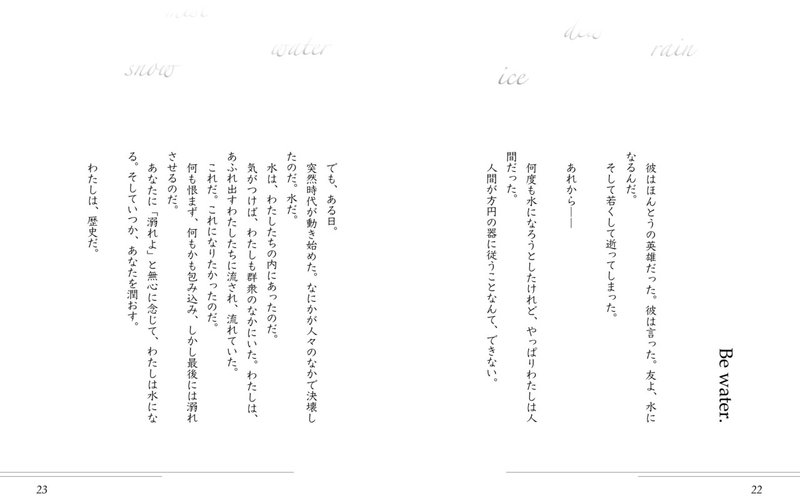 dew
rain
ice
Be water.
彼はほんとうの英雄だった。彼は言った。友よ、水に
なるんだ。
そして若くして逝ってしまった。
あれから――
何度も水になろうとしたけれど、やっぱりわたしは人
間だった。
人間が方円の器に従うことなんて、できない。
22
mist
water
snow
でも、ある日。
突然時代が動き始めた。なにかが人々のなかで決壊し
たのだ。水だ。
水は、わたしたちの内にあったのだ。
気がつけば、わたしも群衆のなかにいた。わたしは、
あふれ出すわたしたちに流され、流れていた。
これだ。これになりたかったのだ。
何も恨まず、何もかも包み込み、しかし最後には溺れ
させるのだ。
あなたに「溺れよ」と無心に念じて、わたしは水にな
る。そしていつか、あなたを潤おす。
わたしは、歴史だ。
23